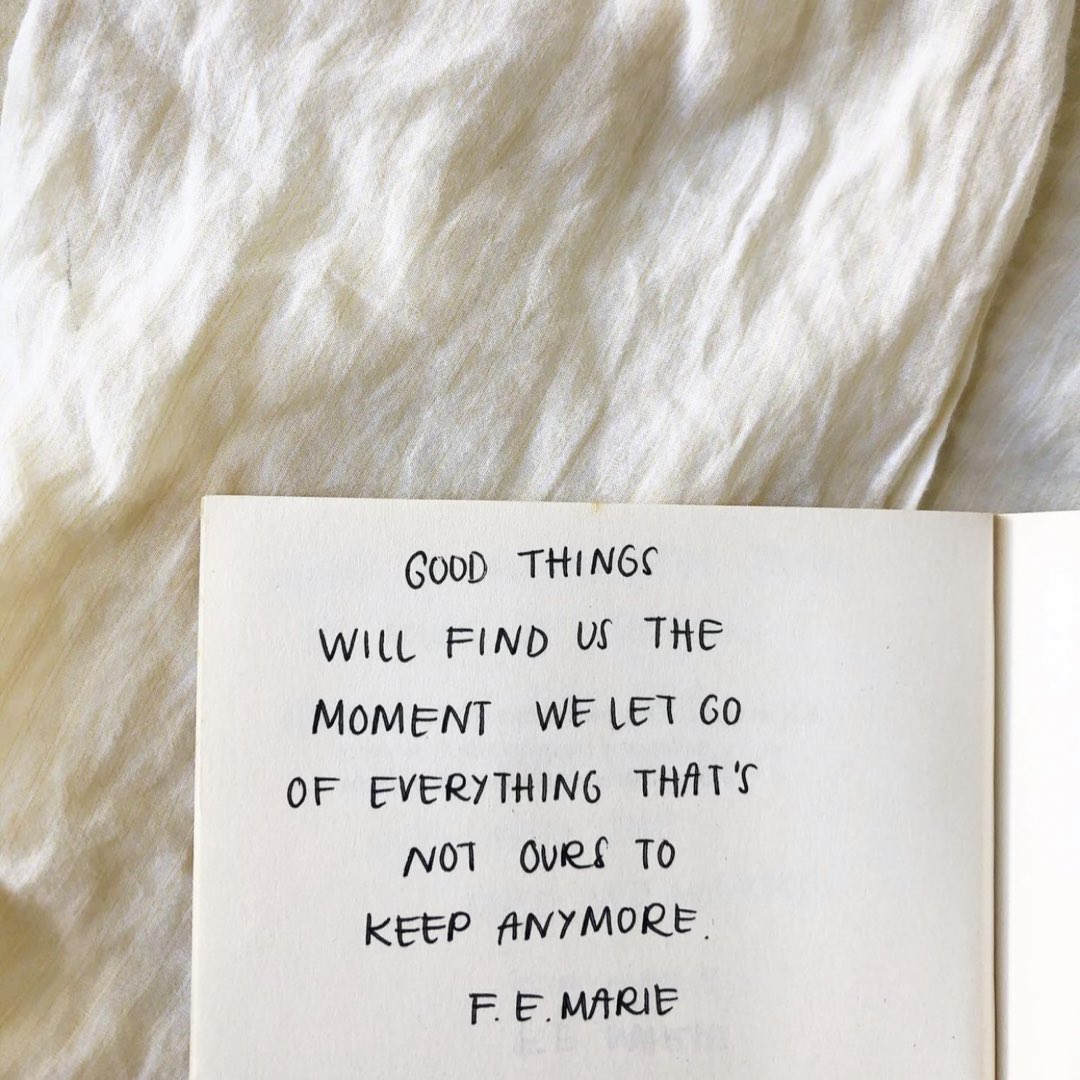 GOOD THINGS
WILL FIND US THE
MOMENT WE LET GO
OF EVERYTHING THAT'S
NOT OURS TO
KEEP ANYMORE.
F. E. MARIE